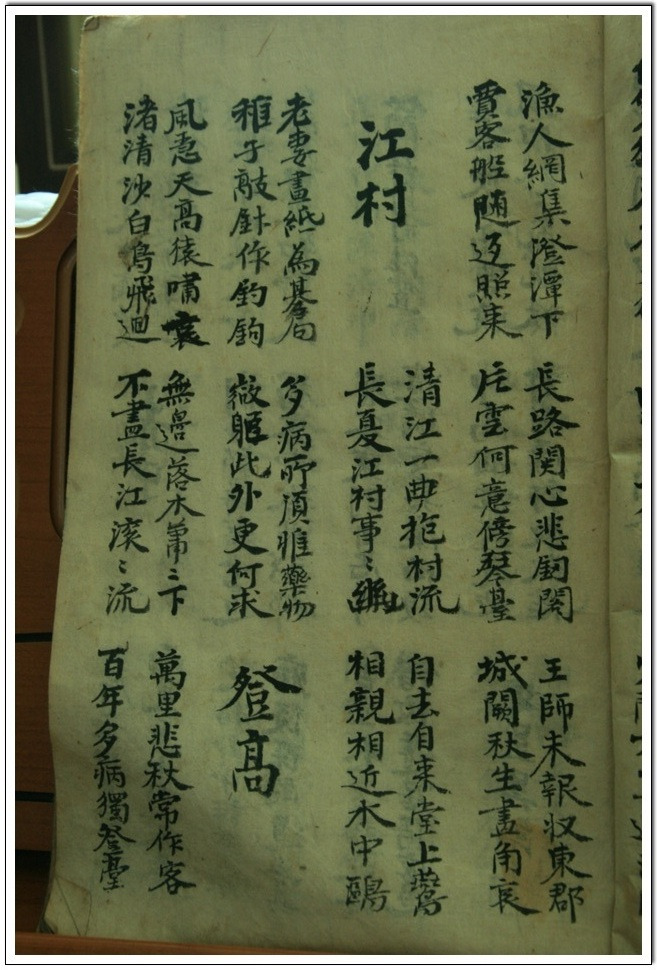 漁人網集澄潭下
賈客船随返照来
長路関心悲釼閣
片雲何意傍琴臺
王師未報収東郡
城闕秋生畫角哀
江村
清江一曲抱村流
長夏江村事〻幽
自去自来堂上鷰
相親相近水中鷗
老妻畫紙為棊局
稚子敲針作釣鉤
多病所須惟藥物
微軀此外更何求
登高
風急天高猿嘯哀
渚清沙白鳥飛迴
無邊落木蕭〻下
不盡長江滚〻流
萬里悲秋常作客
百年多病獨登臺